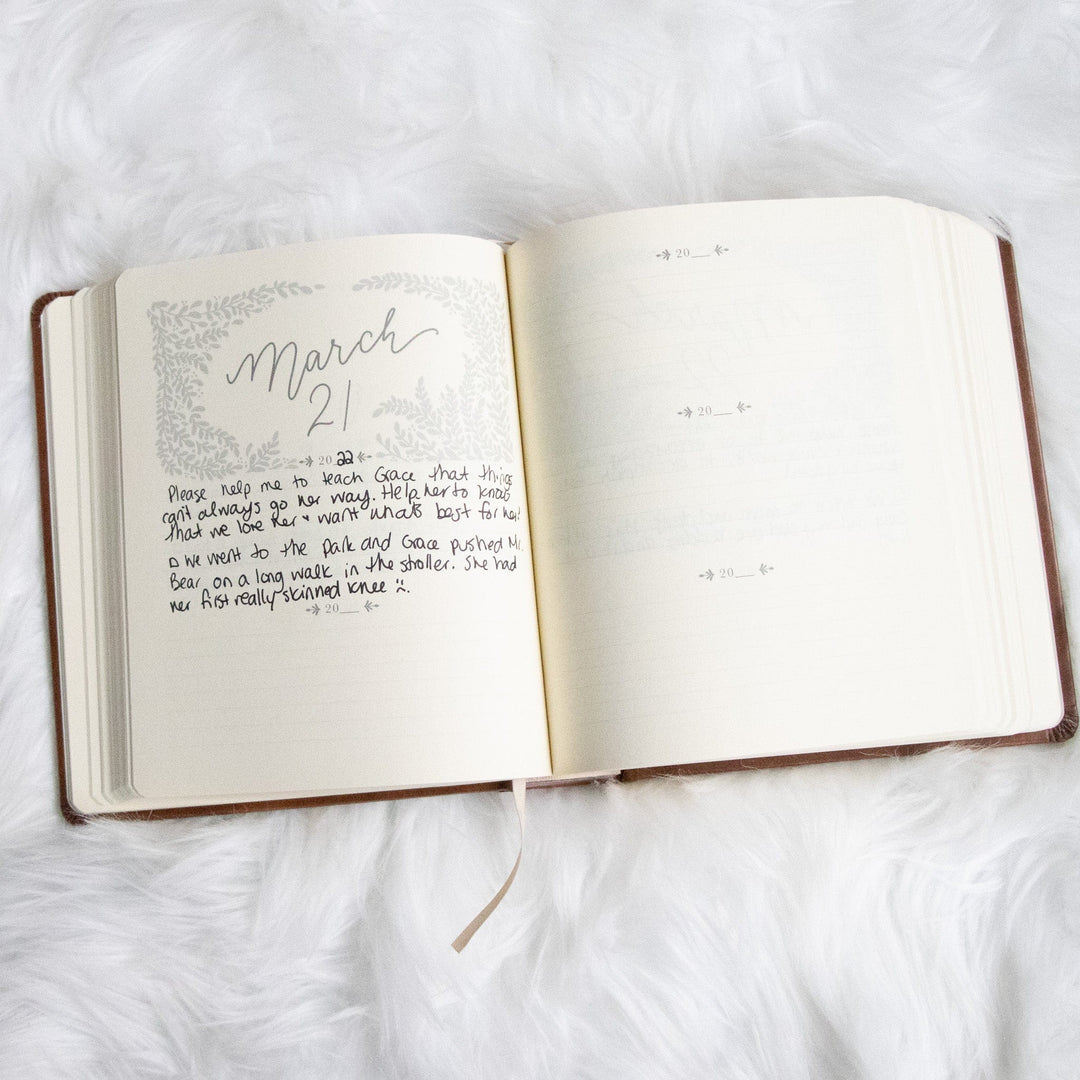 March
21
2022
Please help me to teach Grace that things
can't always go her way. Help her to know
that we love her + want whats best for her!
□ we went to the park and Grace pushed Mr.
Bear on a long walk in the stroller. She had
her first really skinned knee :(.
20__
20__
20__
20__